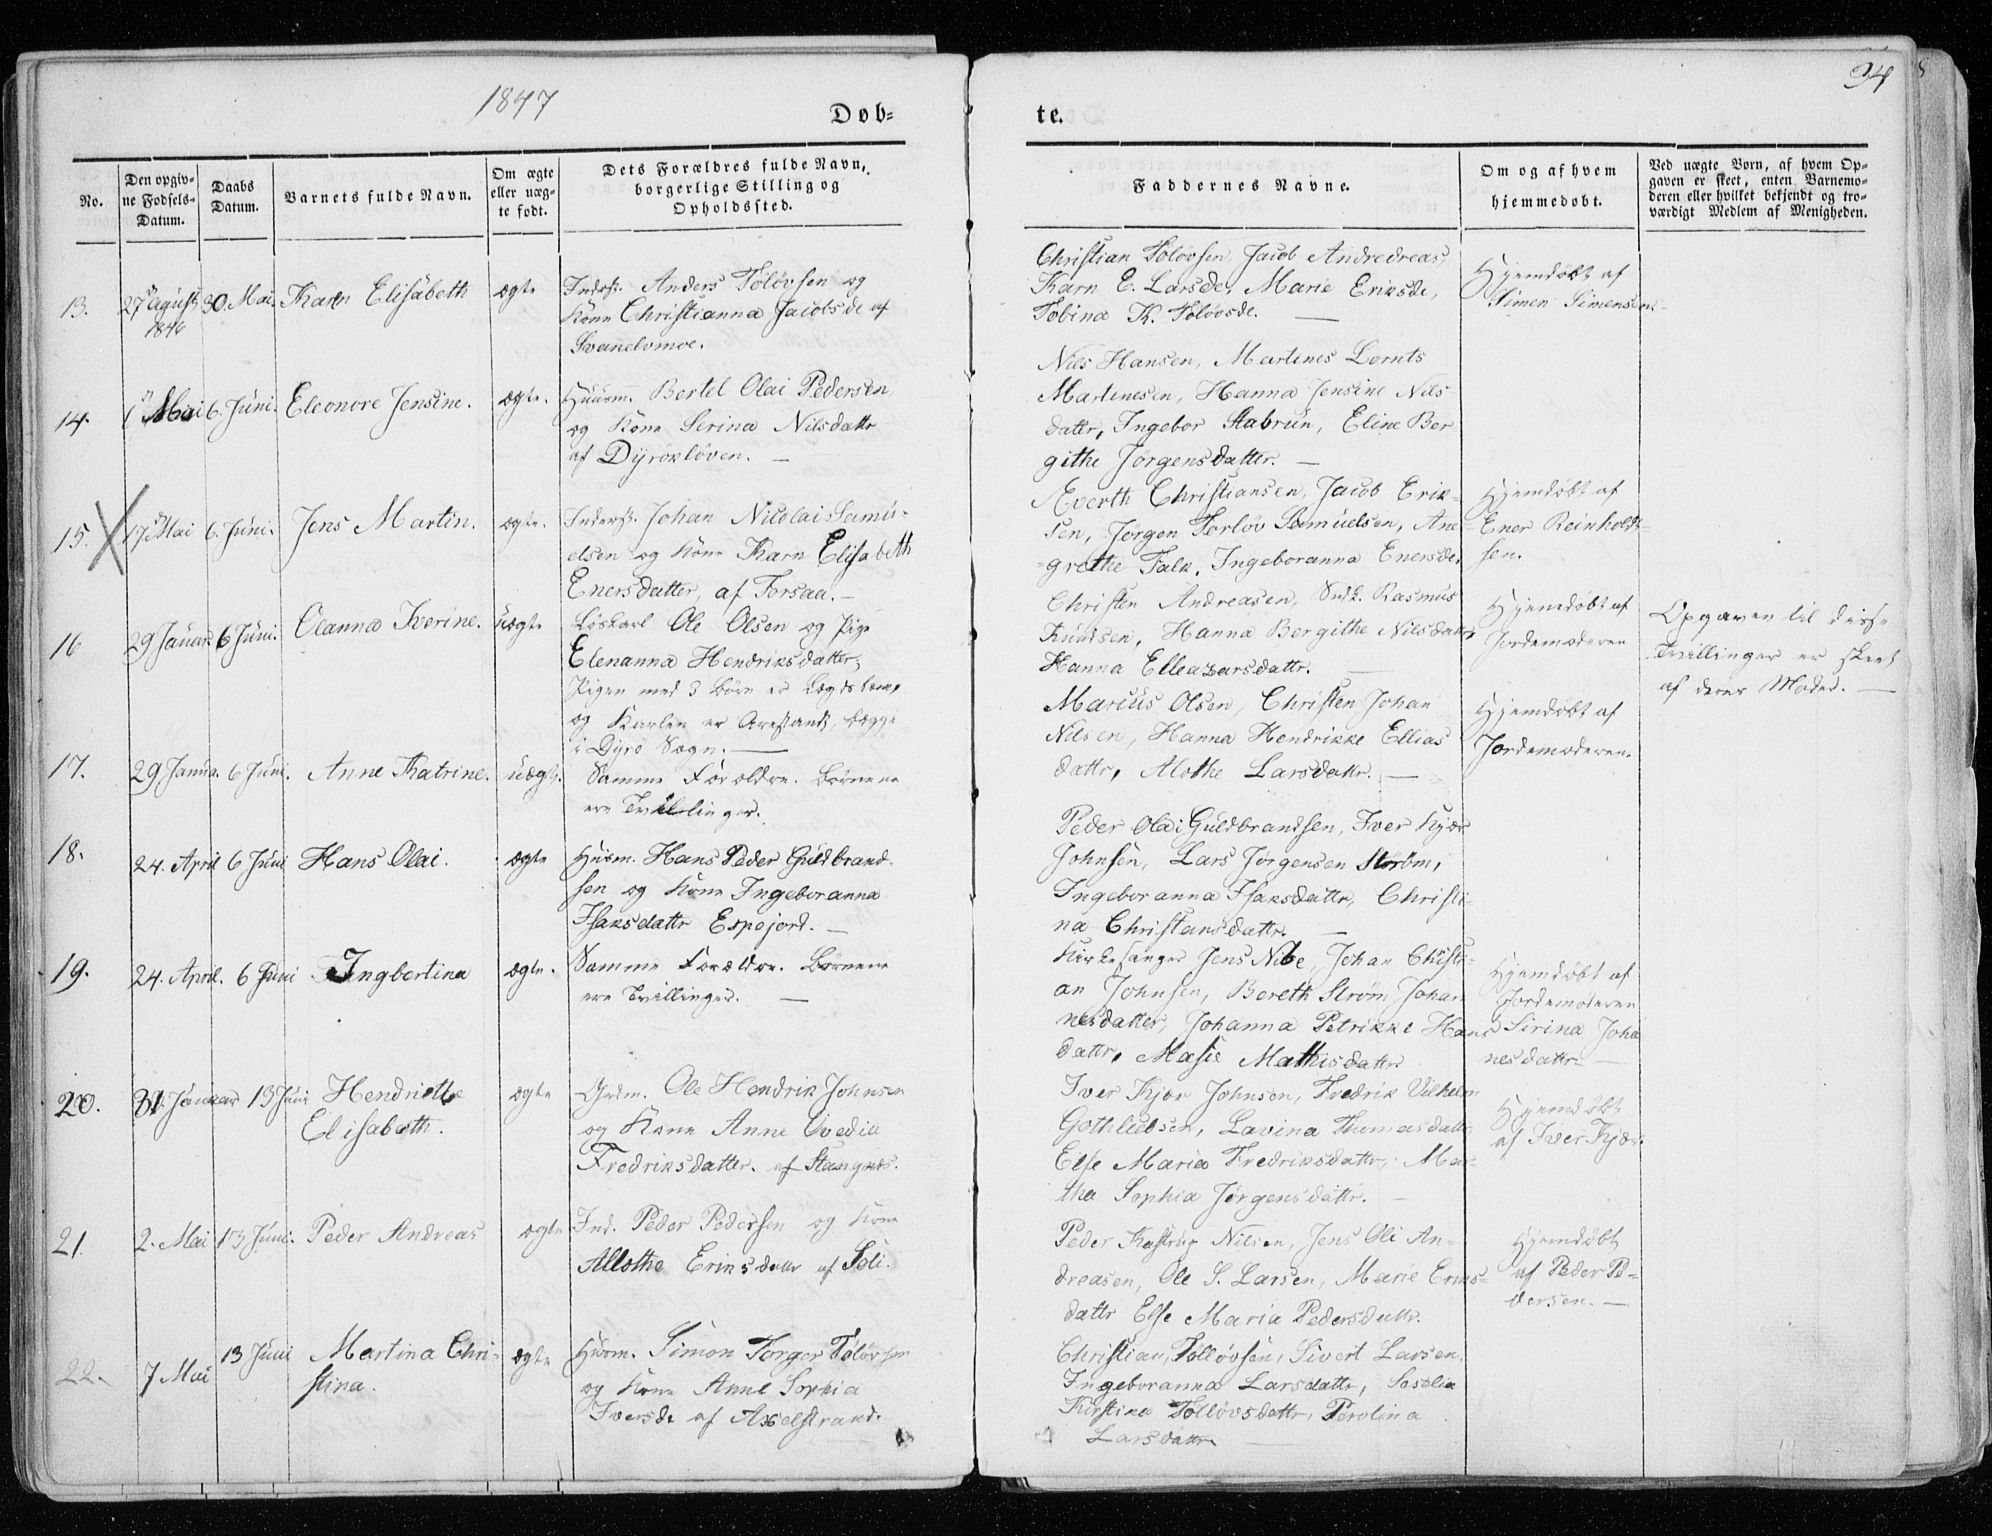 1847
Døb-
te.
34
No.
Den opgiv-
ne Fødsels-
Datum.
Daabs
Datum.
Barnets fulde Navn.
Om ægte
eller uæg-
te født.
Dets Forældres fulde Navn,
borgerlige Stilling og
Opholdssted.
Faddernes Navne.
Om og af hvem
hjemmedøbt.
Ved uægte Børn, af hvem Op-
gaven er skeet, enten Barnemo-
deren eller hvilket bekjendt og tro-
værdigt Medlem af Menigheden.
13.
27 August
1846
30 Mai.
Karn Elisabeth
ægte
Inderst. Anders Tøløvsen og
Kone Christianna Jacobsde af
Svanelvmoe.
Christian Tøløvsen, Jacob Andredreas,
Karn E. Larsde, Marie Eriksde,
Tobina K. Tøløvsde.
Hjemdøbt af
Simen Simensen.
14.
1 Mai
6. Juni.
Eleonore Jensine.
ægte.
Huusm. Bertel Olai Pedersen
og Kone Sirina Nilsdattr
af Dyrøkløven.
Nils Hansen, Martines Lornts
Martinesen, Hanna Jensine Nils
dattr, Ingebor Stabrun, Eline Ber
githe Jørgensdatter.
15.
17 Mai
6. Juni.
Jens Martin.
ægte.
Inderst. Johan Nicolai Samu-
elsen og Kone Karn Elisabeth
Enersdatter, af Forsaa.
Everth Christiansen, Jacob Erik-
sen, Jørgen Torløv Samuelsen, Ane
grethe Falk, Ingeboranna Enersde.
Hjemdøbt af
Ener Reinholdt-
sen.
16
29 Januar
6 Juni.
Oleanna Iverine.
uægte
Løskarl Ole Olsen og Pige
Elenanna Hendriksdatter,
Pigen med 3 Børn er Lægdslem,
og Karlen er Arestant, begge
i Dyrø Sogn.
Christen Andreasen, Rasmus
Knudsen, Hanna Bergithe Nilsdattr,
Hanna Elleazarsdattr.
Hjemdøbt af
Jordemoderen
Opgaven til disse
Tvillinger er skeet
af deres Moder.
17.
29 Janua.
6 Juni.
Anne Katrine.
uægte.
Samme Forældre. Børnene
ere Tvillinger.
Marius Olsen, Christen Johan
Nilsen, Hanna Hendrikke Ellias
dattr, Alothe Larsdattr.
Hjemdøbt af
Jordemoderen.
18.
24. April
6 Juni
Hans Olai.
ægte
Husm. Hans Peder Guldbrand-
sen og Kone Ingeboranna
Isaksdattr Espejord.
Peder Olai Guldbrandsen, Iver Kjær
Johnsen, Lars Jørgensen Strøm,
Ingeboranna Isaksdattr, Christi-
na Christansdattr.
19.
24. April.
6 Juni
Ingbertina
ægte.
Samme Forældre. Børnene
ere Tvillinger.
Kirkesanger Jens Nibe, Johan Christi-
an Johnsen, Bereth Strøm, Johan
nesdatter, Johanna Petrikke Hans
dattr, Masie Mathisdattr.
Hjemdøbt af
Jordemoderen
Sirina Joha
nesdattr
20.
31 Januar
13 Juni
Hendriette
Elisabeth.
ægte
Grdm. Ole Hendrik Johnsen
og Kone Anne Ovedia
Fredriksdatter. af Stangnes.
Iver Kjær Johnsen, Fredrik Vilhelm
Gothliebsen, Lavina Thomasdattr
Else Maria Fredriksdattr, Mar-
tha Sophia Jørgensdattr.
Hjemdøbt
af Iver Kjær.
21.
2. Mai
13 Juni.
Peder Andreas
ægte
Ind. Peder Pedersen og Kone
Allothe Eriksdattr af Soli.
Peder Kastrup Nilsen, Jens Oli An-
dreasen, Ole S. Larsen, Marie Eriks-
dattr Else Maria Pedersdattr.
Hjemdøbt
af Peder Pe-
dersen.
22.
7 Mai
13 Juni
Martina Chri-
stina.
ægte
Husm. Simon Torger Tøløvsen
og Kone Anne Sophia
Iversde af Axelstrand.
Christian Tølløvsen, Sivert Larsen,
Ingeboranna Larsdattr,
Kirstina Tølløvsdattr, Perolina
Larsdattr